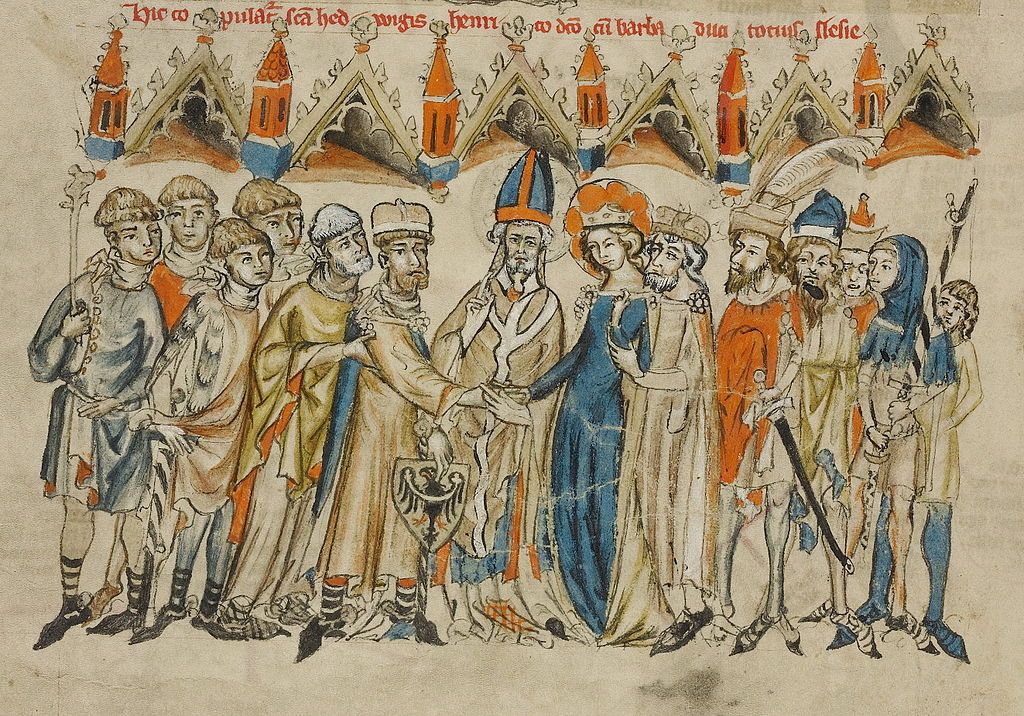 Hic copulatr̄ scā hedwigis henrico dc̄o cū barba duci tocius slesie